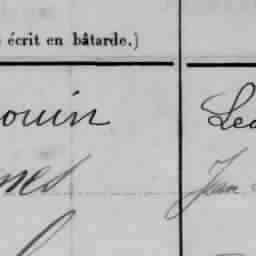 écrit en bâtarde.)
ouin
Led
nes
Jean